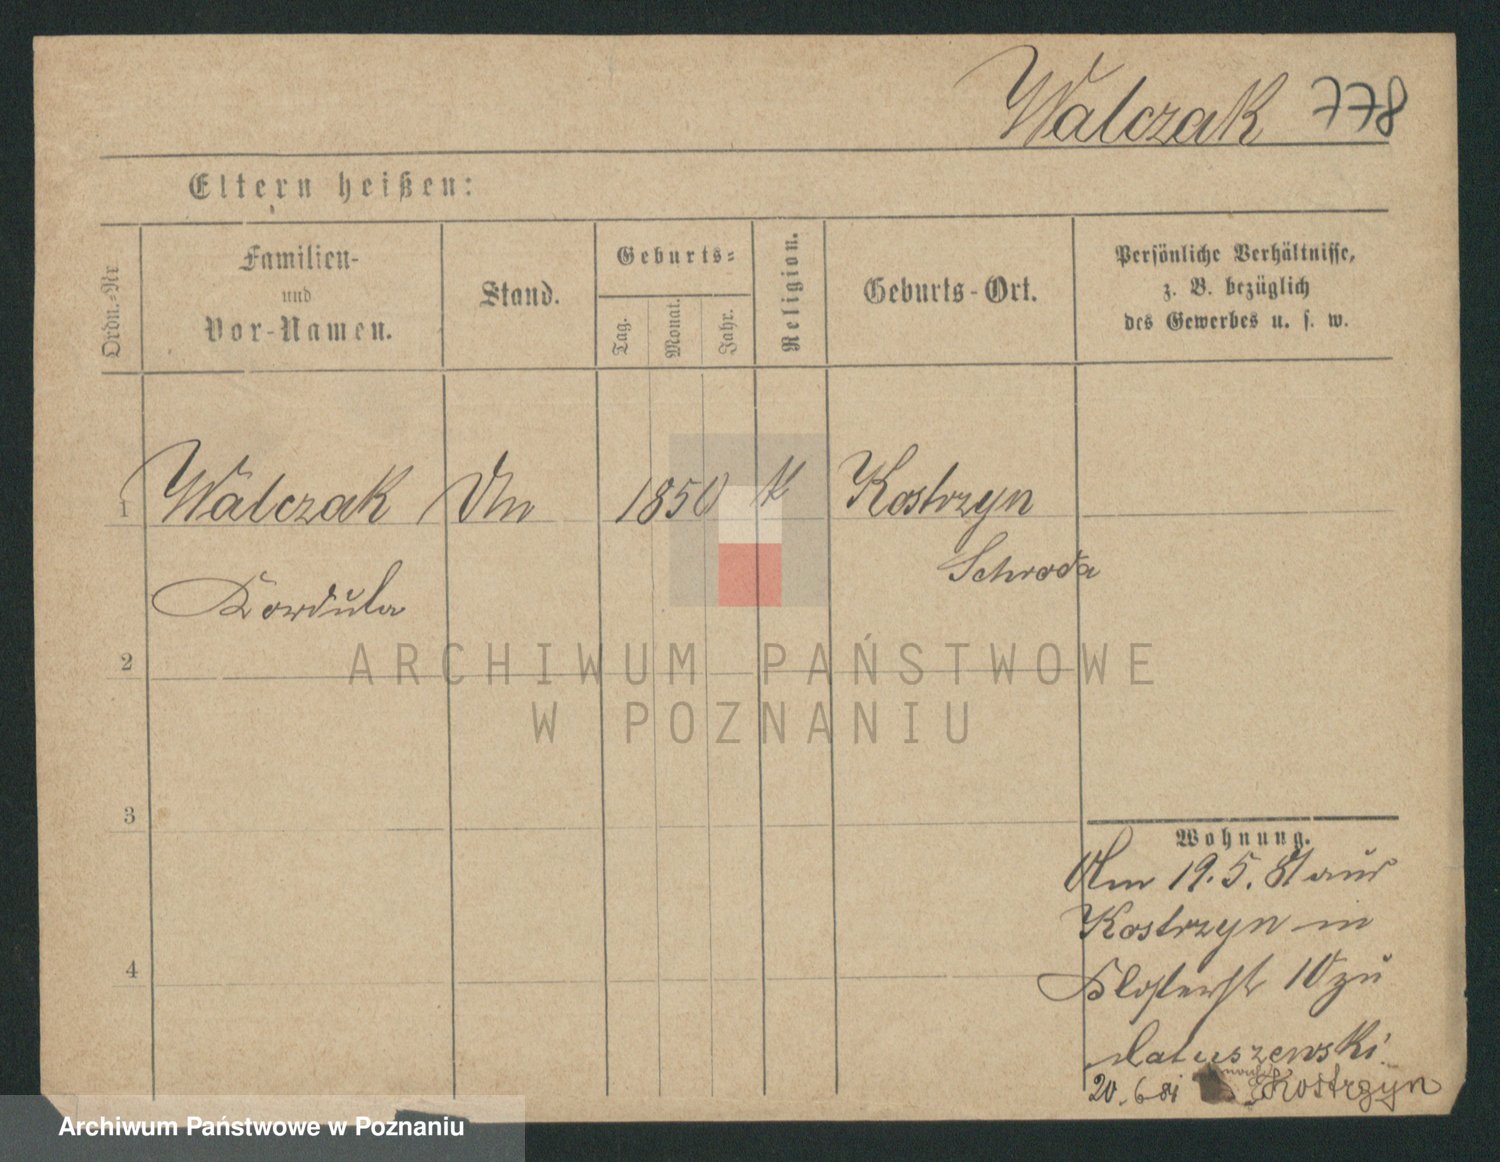 Walczak 778
Eltern heißen:
Ordn.=Nr
Familien-
und
Vor-Namen.
Stand.
Geburts=
Tag.
Monat.
Jahr.
Religion.
Geburts-Ort.
Persönliche Verhältnisse,
z. B. bezüglich
des Gewerbes u. s. w.
1 Walczak 1850 k Kostrzyn
Schroda
Kordula
2
ARCHIWUM PAŃSTWOWE
W POZNANIU
3
Wohnung.
Am 19. 5. 81 aus
Kostrzyn in
4
Klosterstr 10 zu
Matuszewski
20. 6 81 nach Kostrzyn
Archiwum Państwowe w Poznaniu